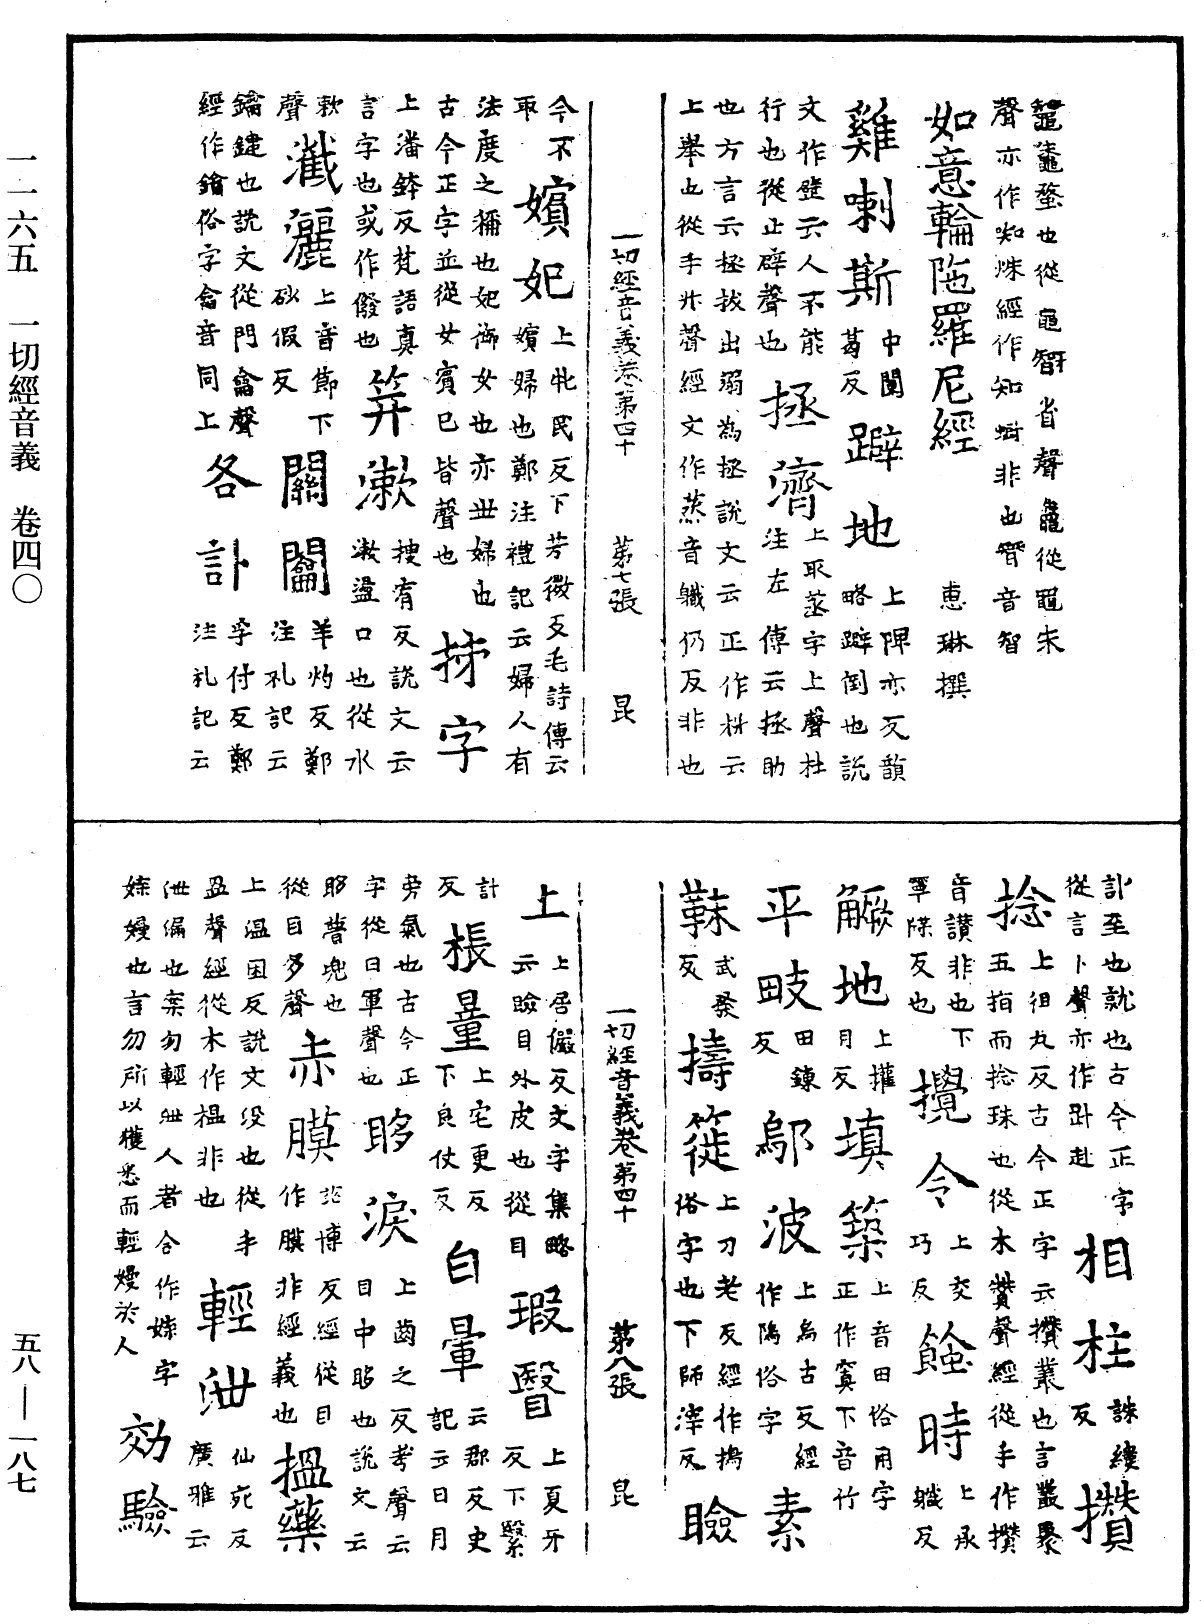 一一六五　一切經音義　卷四〇
五八—一八七
鼅鼄蝥也從黽智省聲鼄從黽朱
聲亦作蜘蛛經作知蛛非也智音智
如意輪陁羅尼經　惠琳撰
雞喇斯中闌葛反躃地上陴亦反韻略躃倒也說
文作壁云人不能行也從止辟聲也拯濟上取蒸字上聲杜注左傳云拯助
也方言云拯拔出溺為拯說文云正作抍云
上舉也從手升聲經文作蒸音軄仍反非也
一切經音義卷第四十　第七張　昆
今不取嬪妃上牝民反下芳微反毛詩傳云嬪婦也鄭注禮記云婦人有
法度之稱也妃御女也亦世婦也
古今正字並從女賓巳皆聲也㧊字
上潘鉢反梵語真言字也或作癈也筭漱搜宥反說文云漱盪口也從水
欶聲瀐灑上音節下砂假反關闟羊灼反鄭注礼記云
鑰鍵也說文從門龠聲經作鑰俗字龠音同上各訃孚付反鄭注礼記云
訃至也就也古今正字
從言卜聲亦作䞳赴相柱誅縷反攢
捻上徂丸反古今正字云攢叢也言叢聚五指而捻珠也從木贊聲經從手作攢
音讃非也下寧牒反也攪令上交巧反蝕時上承軄反
𧤼地上㩴月反填築上音田俗用字正作窴下音竹
平㽻田鍊反鄔波上烏古反經作隖俗字素
䩋武發反擣簁上刀老反經作搗俗字也下師滓反瞼
一切經音義卷第四十　第八張　昆
上上居儼反文字集略云瞼目外皮也從目瑕瞖上夏牙反下翳
計反棖量上宅更反下良仗反白暈云郡反史記云日月
旁氣也古今正字從日軍聲也眵淚上齒之反考聲云目中眵也說文云
眵䁾兜也從目多聲赤膜訟博反經從目作瞙非經義也搵藥
上溫困反說文没也從手昷聲經從木作榅非也輕泄仙宛反廣雅云
泄漏也案勿輕泄人者合作媟字
媟嫚也言勿所以獲悉而輕嫚於人効驗